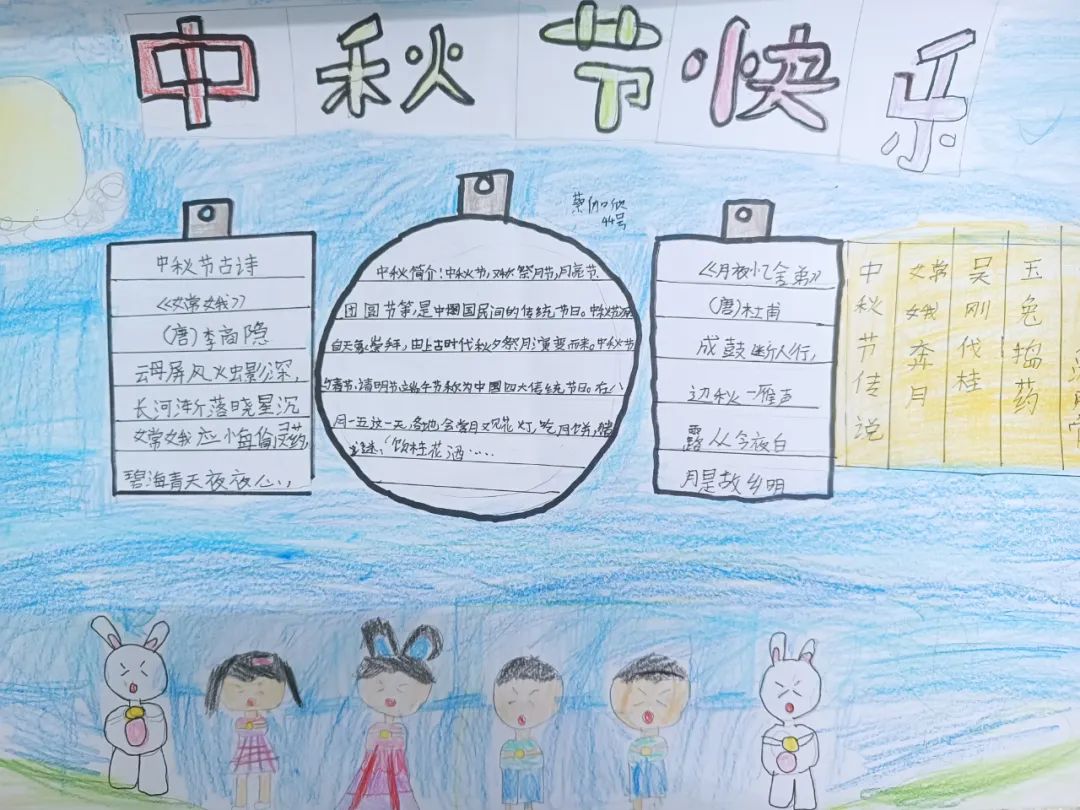 中秋节快乐
蔡伽欣
44号
中秋节古诗
《嫦娥》
(唐)李商隐
云母屏风火虫影深,
长河渐落晓星沉
嫦娥应悔偷灵药,
碧海青天夜夜心,
中秋简介:中秋节,又称祭月节,月亮节
团圆节等,是中国民间的传统节日。中秋节源
自天象崇拜,由上古时代秋夕祭月演变而来。中秋节
与春节、清明节、端午节称为中国四大传统节日。在八
月一五这一天,各地会赏月观花灯,吃月饼,猜
谜,饮桂花酒……
《月夜忆舍弟》
(唐)杜甫
戍鼓断人行,
边秋一雁声
露从今夜白
月是故乡明
中秋节传说
嫦娥奔月
吴刚伐桂
玉兔捣药